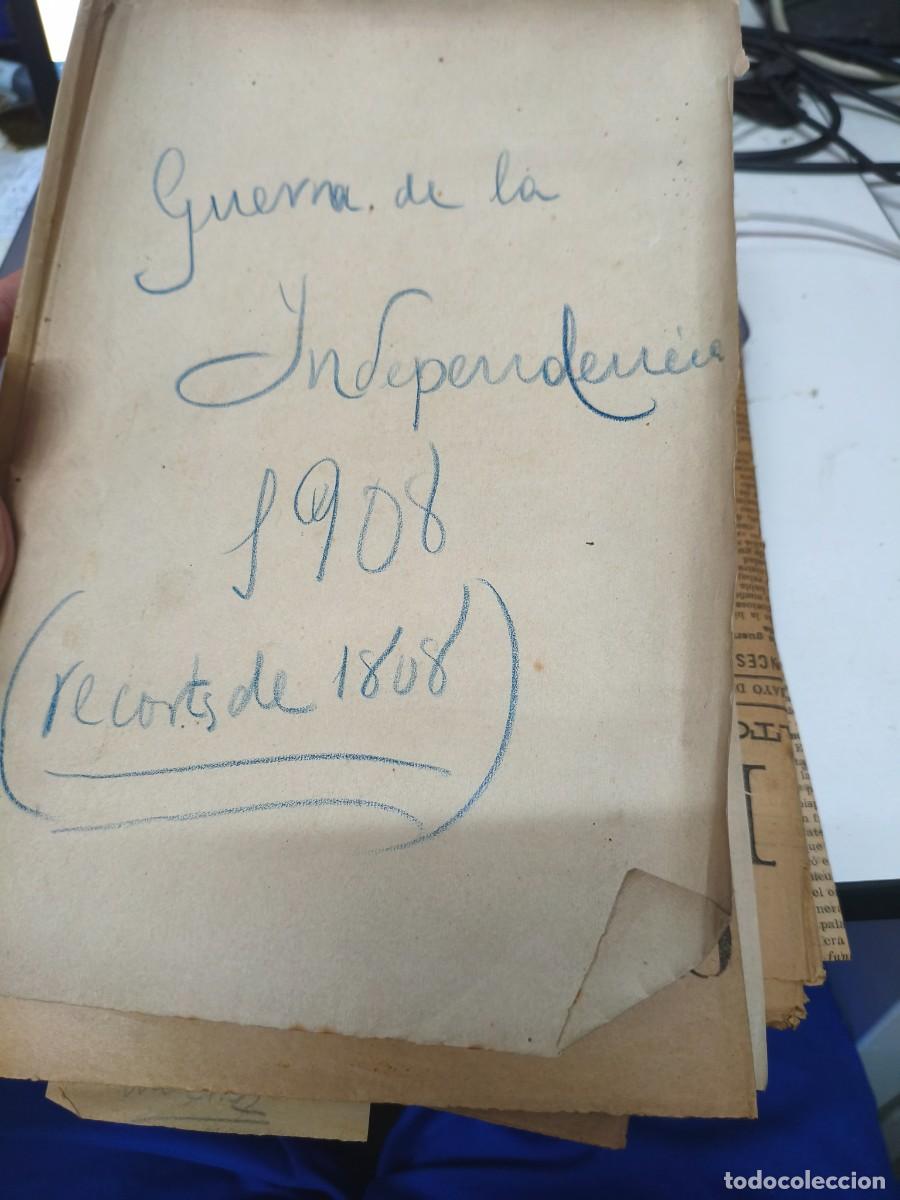 Guerra de la
Independencia
1908
(recorts de 1808)
NCES
AYO D
todocoleccion